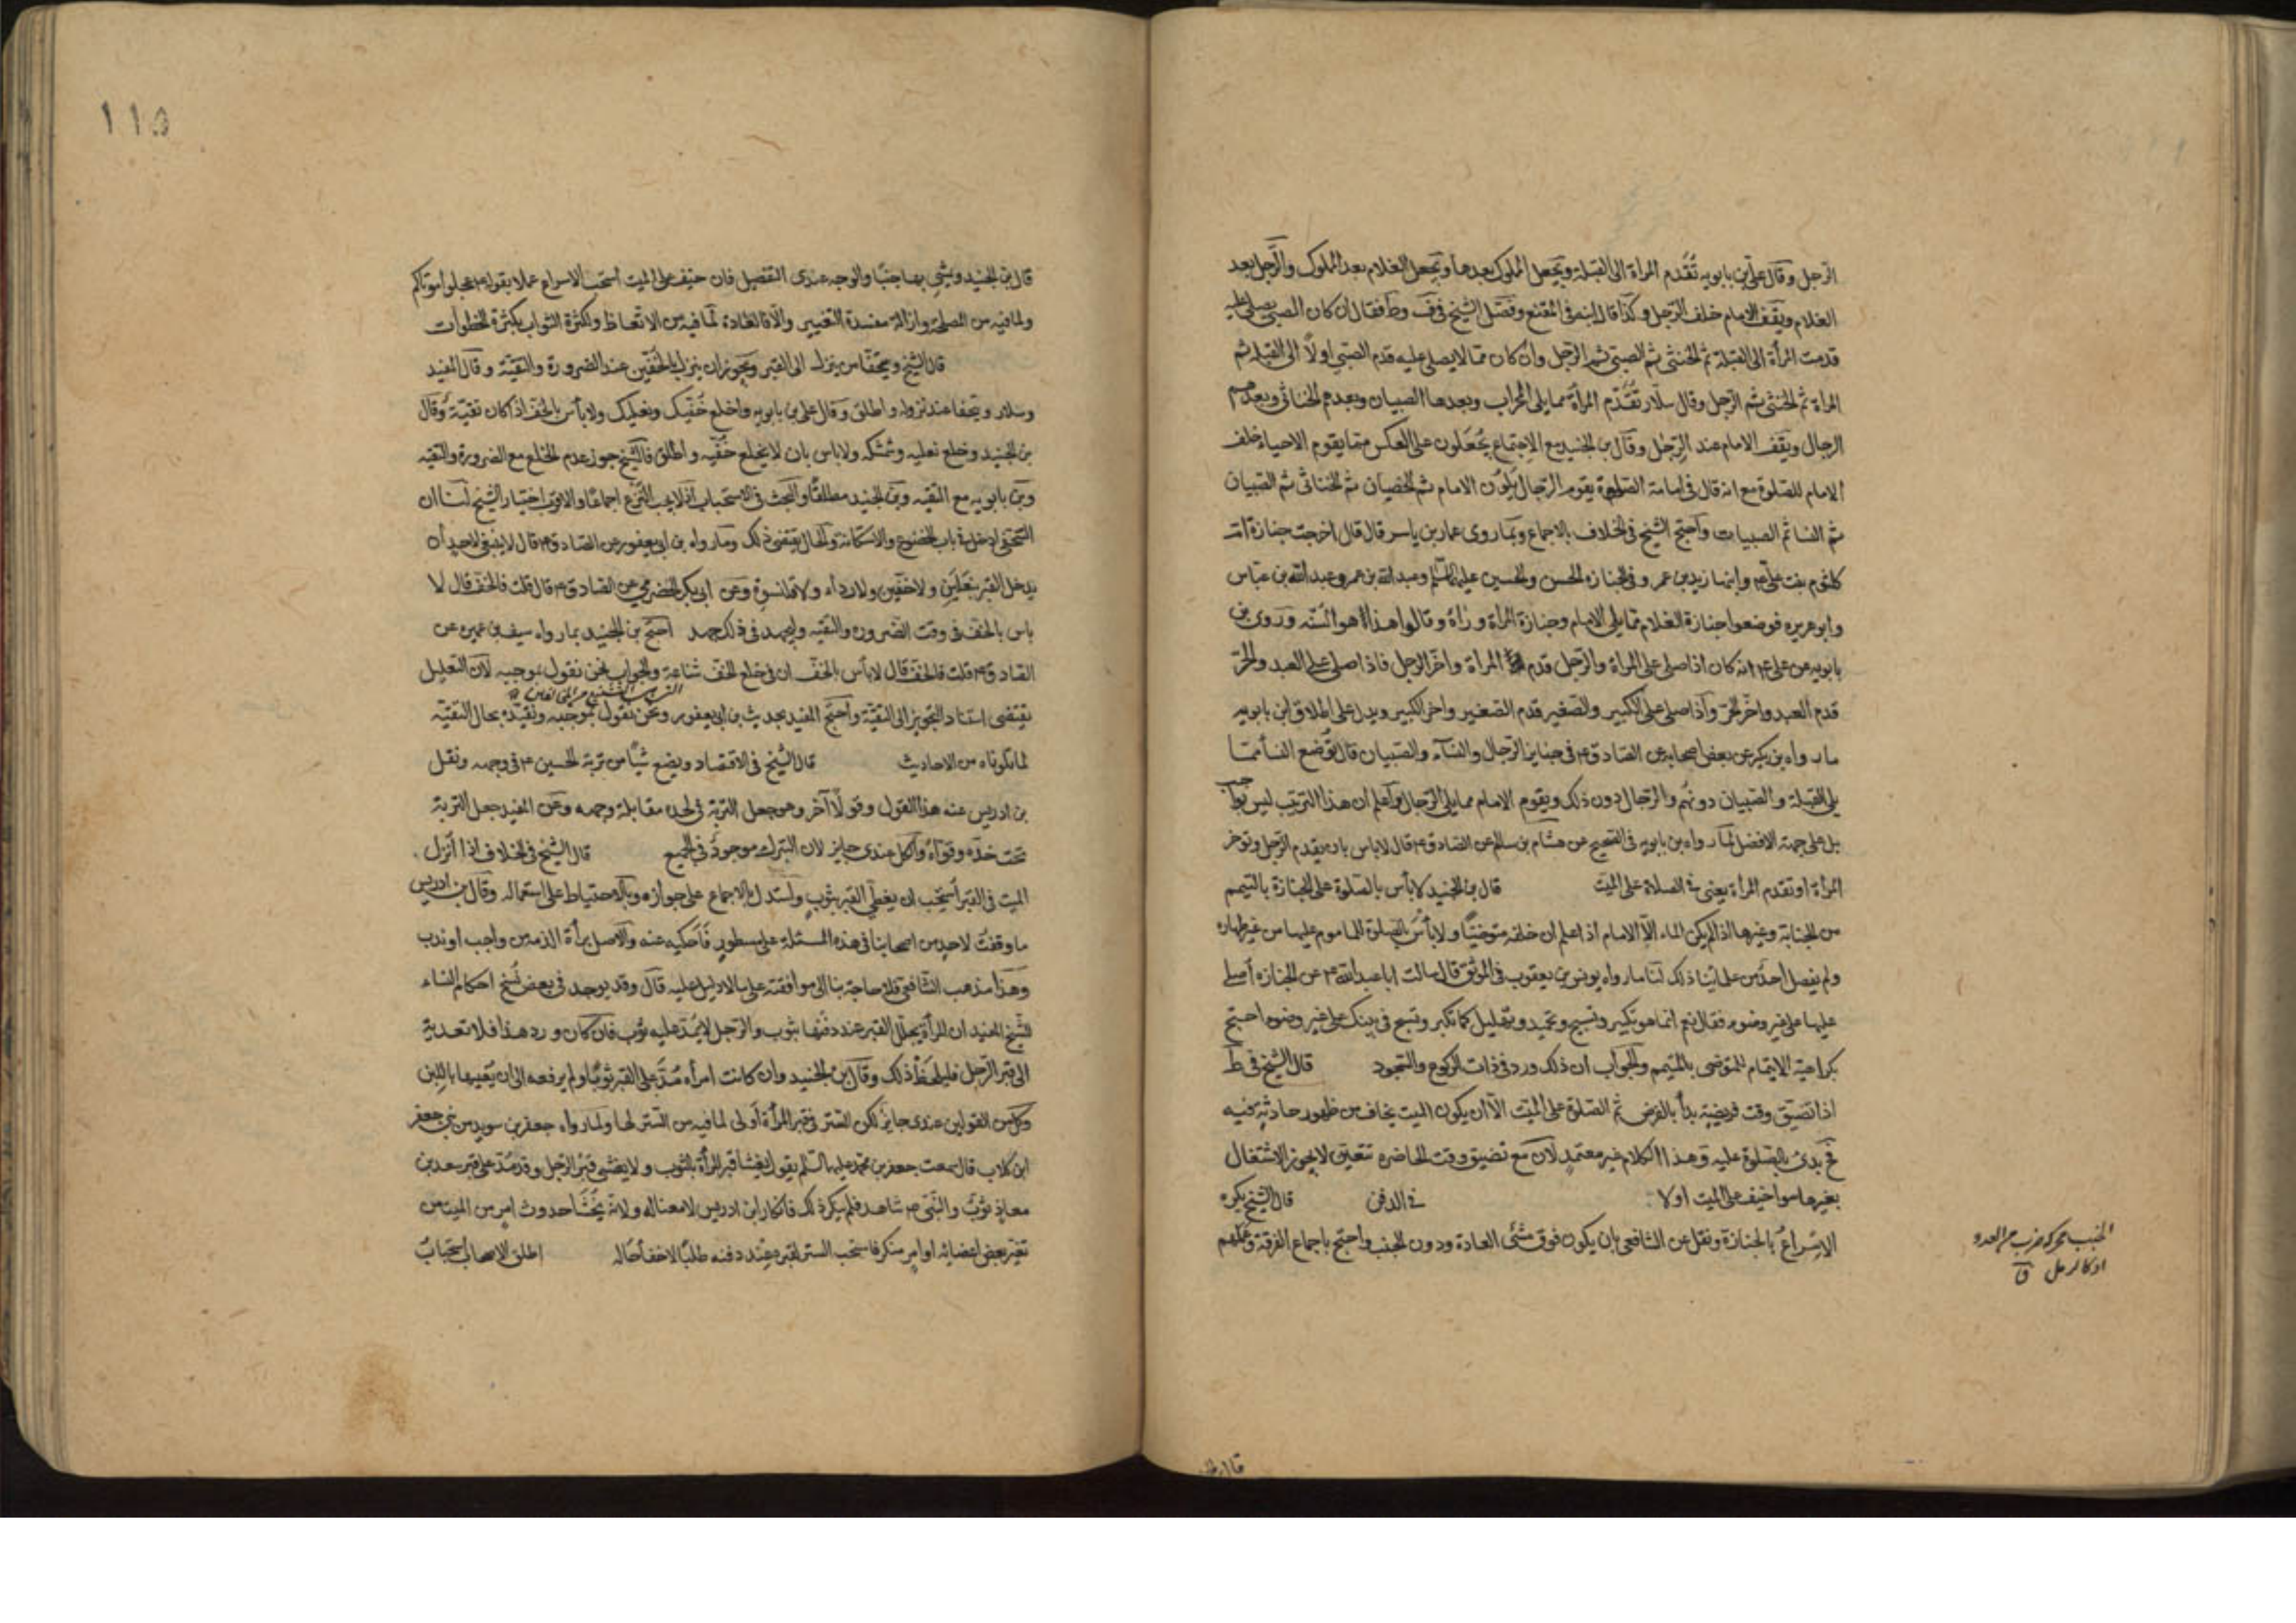 الرجل وقال علي بن بابويه تُقَدم المراة الى القبلة ويجعل المملوك بعدها ويجعل الغلام بعد المملوك والرجل بعد
الغلام ويقف الامام خلف الرجل وكذا قال ابنه في المقنع وفصّل الشيخ في ف وط فقال ان كان الصبي يصلى عليه
قدمت المرأة الى القبلة ثم الخنثى ثم الصبي ثم الرجل وان كان ممّا لا يصلى عليه قدم الصبي اولًا الى القبلة ثم
المراة ثم الخنثى ثم الرجل وقال سلّار تُقدّم المرأة مما يلى المحراب وبعدها الصبيان وبعدهم الخناثى وبعدهم
الرجال ويقف الامام عند الرجل وقال بن الجنيد مع الاجتماع يُجعَلون على العكس مما يقوم الاحياء خلف
الامام للصلوة مع انه قال في امامة الصلوة يقوم الرجال يَلُون الامام ثم الخصيان ثم الخناثى ثم الصبيان
ثم النسا ثم الصبيات واحتج الشيخ في الخلاف بالاجماع وبما روى عمار بن ياسر قال قال اخرجت جنازة ام
كلثوم بنت علي ع وابنها زيد بن عمر وفي الجنازه الحسن والحسين عليهما السلم وعبد الله بن عمر وعبد الله بن عباس
وابو هريره فوضعوا جنازة الغلام مما يلى الامام وجنازة المراة وراءه وقالوا هذا هو السنّه وروى بن
بابويه عن علي ع انه كان اذا صلى على المراة والرجل قدم المراة واخّر الرجل فاذا صلى على العبد والحرّ
قدم العبد واخّر الحرّ واذا صلى على الكبير والصغير قدم الصغير واخر الكبير ويدل على اطلاق ابن بابويه
ما رواه بن بكير عن بعض اصحابه عن الصادق ع في جنايز الرجال والنساء والصبيان قال تُوضع النسا مما
يلى القبلة والصبيان دونهم والرجال دون ذلك ويقوم الامام مما يلى الرجال واعلم ان هذا الترتيب ليس بواجب
بل على جهة الافضل لما رواه بن بابويه في الصحيح عن هشام بن سالم عن الصادق ع قال لا باس بان يقدم الرجل وتوخر
المرأة او تقدم المرأة يعني في الصلاة على الميّت قال بن الجنيد لا بأس بالصلوة على الجنازة بالتيمم
من الجنابة وغيرها اذا لم يكن الماء الّا الامام اذا علم ان خلفه متوضيًا ولا بأس بالصلوة للماموم عليها من غير طهاره
ولم يفصل احدٌ من علمائنا ذلك لنا ما رواه يونس بن يعقوب في الموثق قال سالت ابا عبد الله ع عن الجنازه أصلي
عليها على غير وضوء فقال نعم انما هو تكبير وتسبيح وتحميد وتهليل كما تكبر وتسبح في بيتك على غير وضوء احتج
بكراهية الايتمام للمتوضى بالمتيمم والجواب ان ذلك ورد في ذات الركوع والسجود قال الشيخ في ط
اذا تضيّق وقت فريضةٍ بدأ بالفرض ثم الصلوة على الميّت الّا ان يكون الميت يخاف من ظهور حادثةٍ فيه
فح يبدئ بالصلوة عليه وهذا الكلام غير معتمد لان مع تضيق وقت الحاضره تتعيّن لا يجوز الاشتغال
بغيرها سوا خيف على الميت او لا في الدفن قال الشيخ يكره
الاسراع بالجنازة ونقل عن الشافعي بان يكون فوق مشي العادة ودون الخبب واحتج باجماع الفرقة وعملهم
الخبب محركة ضرب من العدو
او كالرمل ق
١١٥
قال بن الجنيد ويمشي بها خببًا والوجه عندى التفصيل فان خيف على الميت استحب الاسراع عملا بقوله ع عجلوا موتاكم
ولما فيه من المصلحة وازالة مفسدة التغيير والّا فالعادة لما فيه من الاتعاظ ولكثرة الثواب بكثرة الخطوات
قال الشيخ ويتحفّا من ينزل الى القبر ويجوز ان ينزل بالخفّين عند الضرورة والتقيّة وقال المفيد
وسلار ويتحفا عند نزوله واطلق وقال علي بن بابويه واخلع خُفّيك ونعليك ولا بأس بالخف اذا كان تقيّة وقال
بن الجنيد وخلع نعليه وشمشكه ولا باس بان لا يخلع خفّيه واطلق فالشيخ جوز عدم الخلع مع الضرورة والتقيه
وبن بابويه مع التقيه وبن الجنيد مطلقًا والبحث في الاستحباب اذ لا يجب النزع اجماعًا والاقرب اختيار الشيخ لنا ان
التحفى ادخل في باب الخضوع والاستكانة والحال يقتضي ذلك وما رواه بن ابي يعفور عن الصادق ع قال لا ينبغي لاحدٍ ان
يدخل القبر بنعلين ولا خفّين ولا رداء ولا قلنسوة وعن ابي بكر الحضرمي عن الصادق ع قال قلت فالخف قال لا
باس بالخف في وقت الضروره والتقيه وليجهد في ذلك جهد احتج بن الجنيد بما رواه سيف بن عميره عن
الصادق ع قلت فالخف قال لا بأس بالخف ان في خلع الخف شناعة والجواب نحن نقول بموجبه لان التعليل
يقتضي استناد التجويز الى التقيّة واحتج المفيد بحديث بن ابي يعفور ونحن نقول بموجبه ونقيّده بحال التقيّه
لما تلوناه من الاحاديث قال الشيخ في الاقتصاد ويضع شيًا من تربة الحسين ع في وجهه ونقل
بن ادريس عنه هذا القول وقولًا آخر وهو جعل التربة في لحده مقابلة وجهه وعن المفيد جعل التربة
تحت خدّه وقوّاه والكل عندى جايز لان التبرك موجودٌ في الجميع قال الشيخ في الخلاف اذا انزل
الميت في القبر استحب ان يغطّى القبر بثوب واستدل بالاجماع على جوازه وبالاحتياط على استعماله وقال بن ادريس
ما وقفتُ لاحدٍ من اصحابنا في هذه المسئلة على مسطورٍ فاَحكيه عنه والاصل برأة الذمه من واجب او ندب
وهذا مذهب الشافعي فلا حاجة بنا الى موافقته على ما لا دليل عليه قال وقد يوجد في بعض نُسخ احكام النساء
للشيخ المفيد ان المرأة يجلّل القبر عند دفنها بثوب والرجل لا يُمدّ عليه ثوب فان كان ورد هذا فلا تعدية
الى قبر الرّجل فليلحظ ذلك وقال بن الجنيد وان كانت امرأه مُدّ على القبر ثوبًا ولم يرفعه الى ان يُغيبها باللبن
وكل من القولين عندى جايز لكن الستر في قبر المرأة اولى لما فيه من الستر لها ولما رواه جعفر بن سويد من بني جعفر
ابن كلاب قال سمعت جعفر بن محمد عليهما السّلم يقول يغشا قبر المرأة بالثوب ولا يغشى قبر الرّجل وقد مُدّ على قبر سعد بن
معاذٍ ثوبٌ والنّبي ص شاهد فلم ينكر ذلك فانكار ابن ادريس لا معنا له ولانه يُخشَا حدوث امرٍ من الميت من
تغيّر بعض اعضائه او امرٍ منكر فاستحب الستر لقبره عند دفنه طلبًا لاخفا حاله اطلق الاصحاب استحبابَ